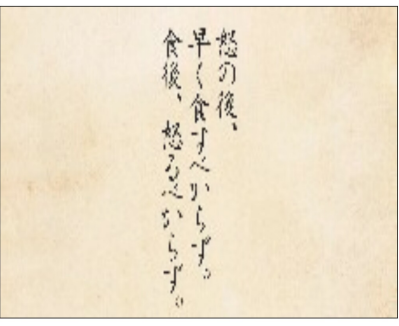 怒の後、
早く食すべからず。
食後、怒るべからず。